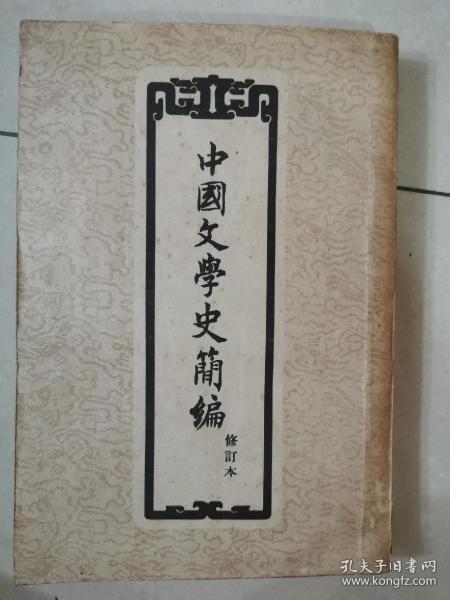 中國文學史簡編
修訂本
孔夫子旧书网
www.kongfz.com